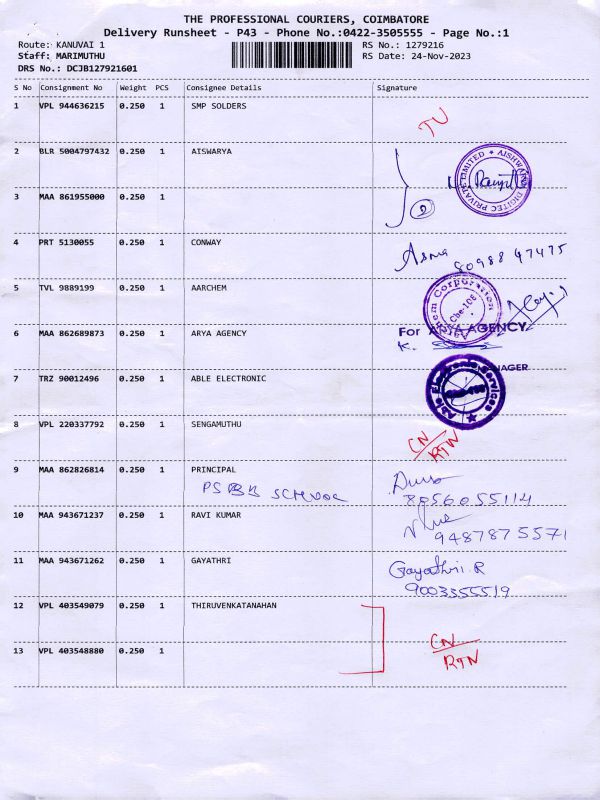 THE PROFESSIONAL COURIERS, COIMBATORE
Delivery Runsheet - P43 - Phone No.:0422-3505555 - Page No.:1
Route: KANUVAI 1 RS No.: 1279216
Staff: MARIMUTHU RS Date: 24-Nov-2023
DRS No.: DCJB127921601
S No Consignment No Weight PCS Consignee Details Signature
1 VPL 944636215 0.250 1 SMP SOLDERS
2 BLR 5004797432 0.250 1 AISWARYA
3 MAA 861955000 0.250 1
4 PRT 5130055 0.250 1 CONWAY Asma 80988 47475
5 TVL 9889199 0.250 1 AARCHEM
6 MAA 862689873 0.250 1 ARYA AGENCY For ARYA AGENCY
K.
7 TRZ 90012496 0.250 1 ABLE ELECTRONIC Able Electronic Services
8 VPL 220337792 0.250 1 SENGAMUTHU CN/RTN
9 MAA 862826814 0.250 1 PRINCIPAL
PSBB SCHOOL 8056055114
10 MAA 943671237 0.250 1 RAVI KUMAR
9487875571
11 MAA 943671262 0.250 1 GAYATHRI Gayathri.R
9003355519
12 VPL 403549079 0.250 1 THIRUVENKATANAHAN
13 VPL 403548880 0.250 1 CN/RTN